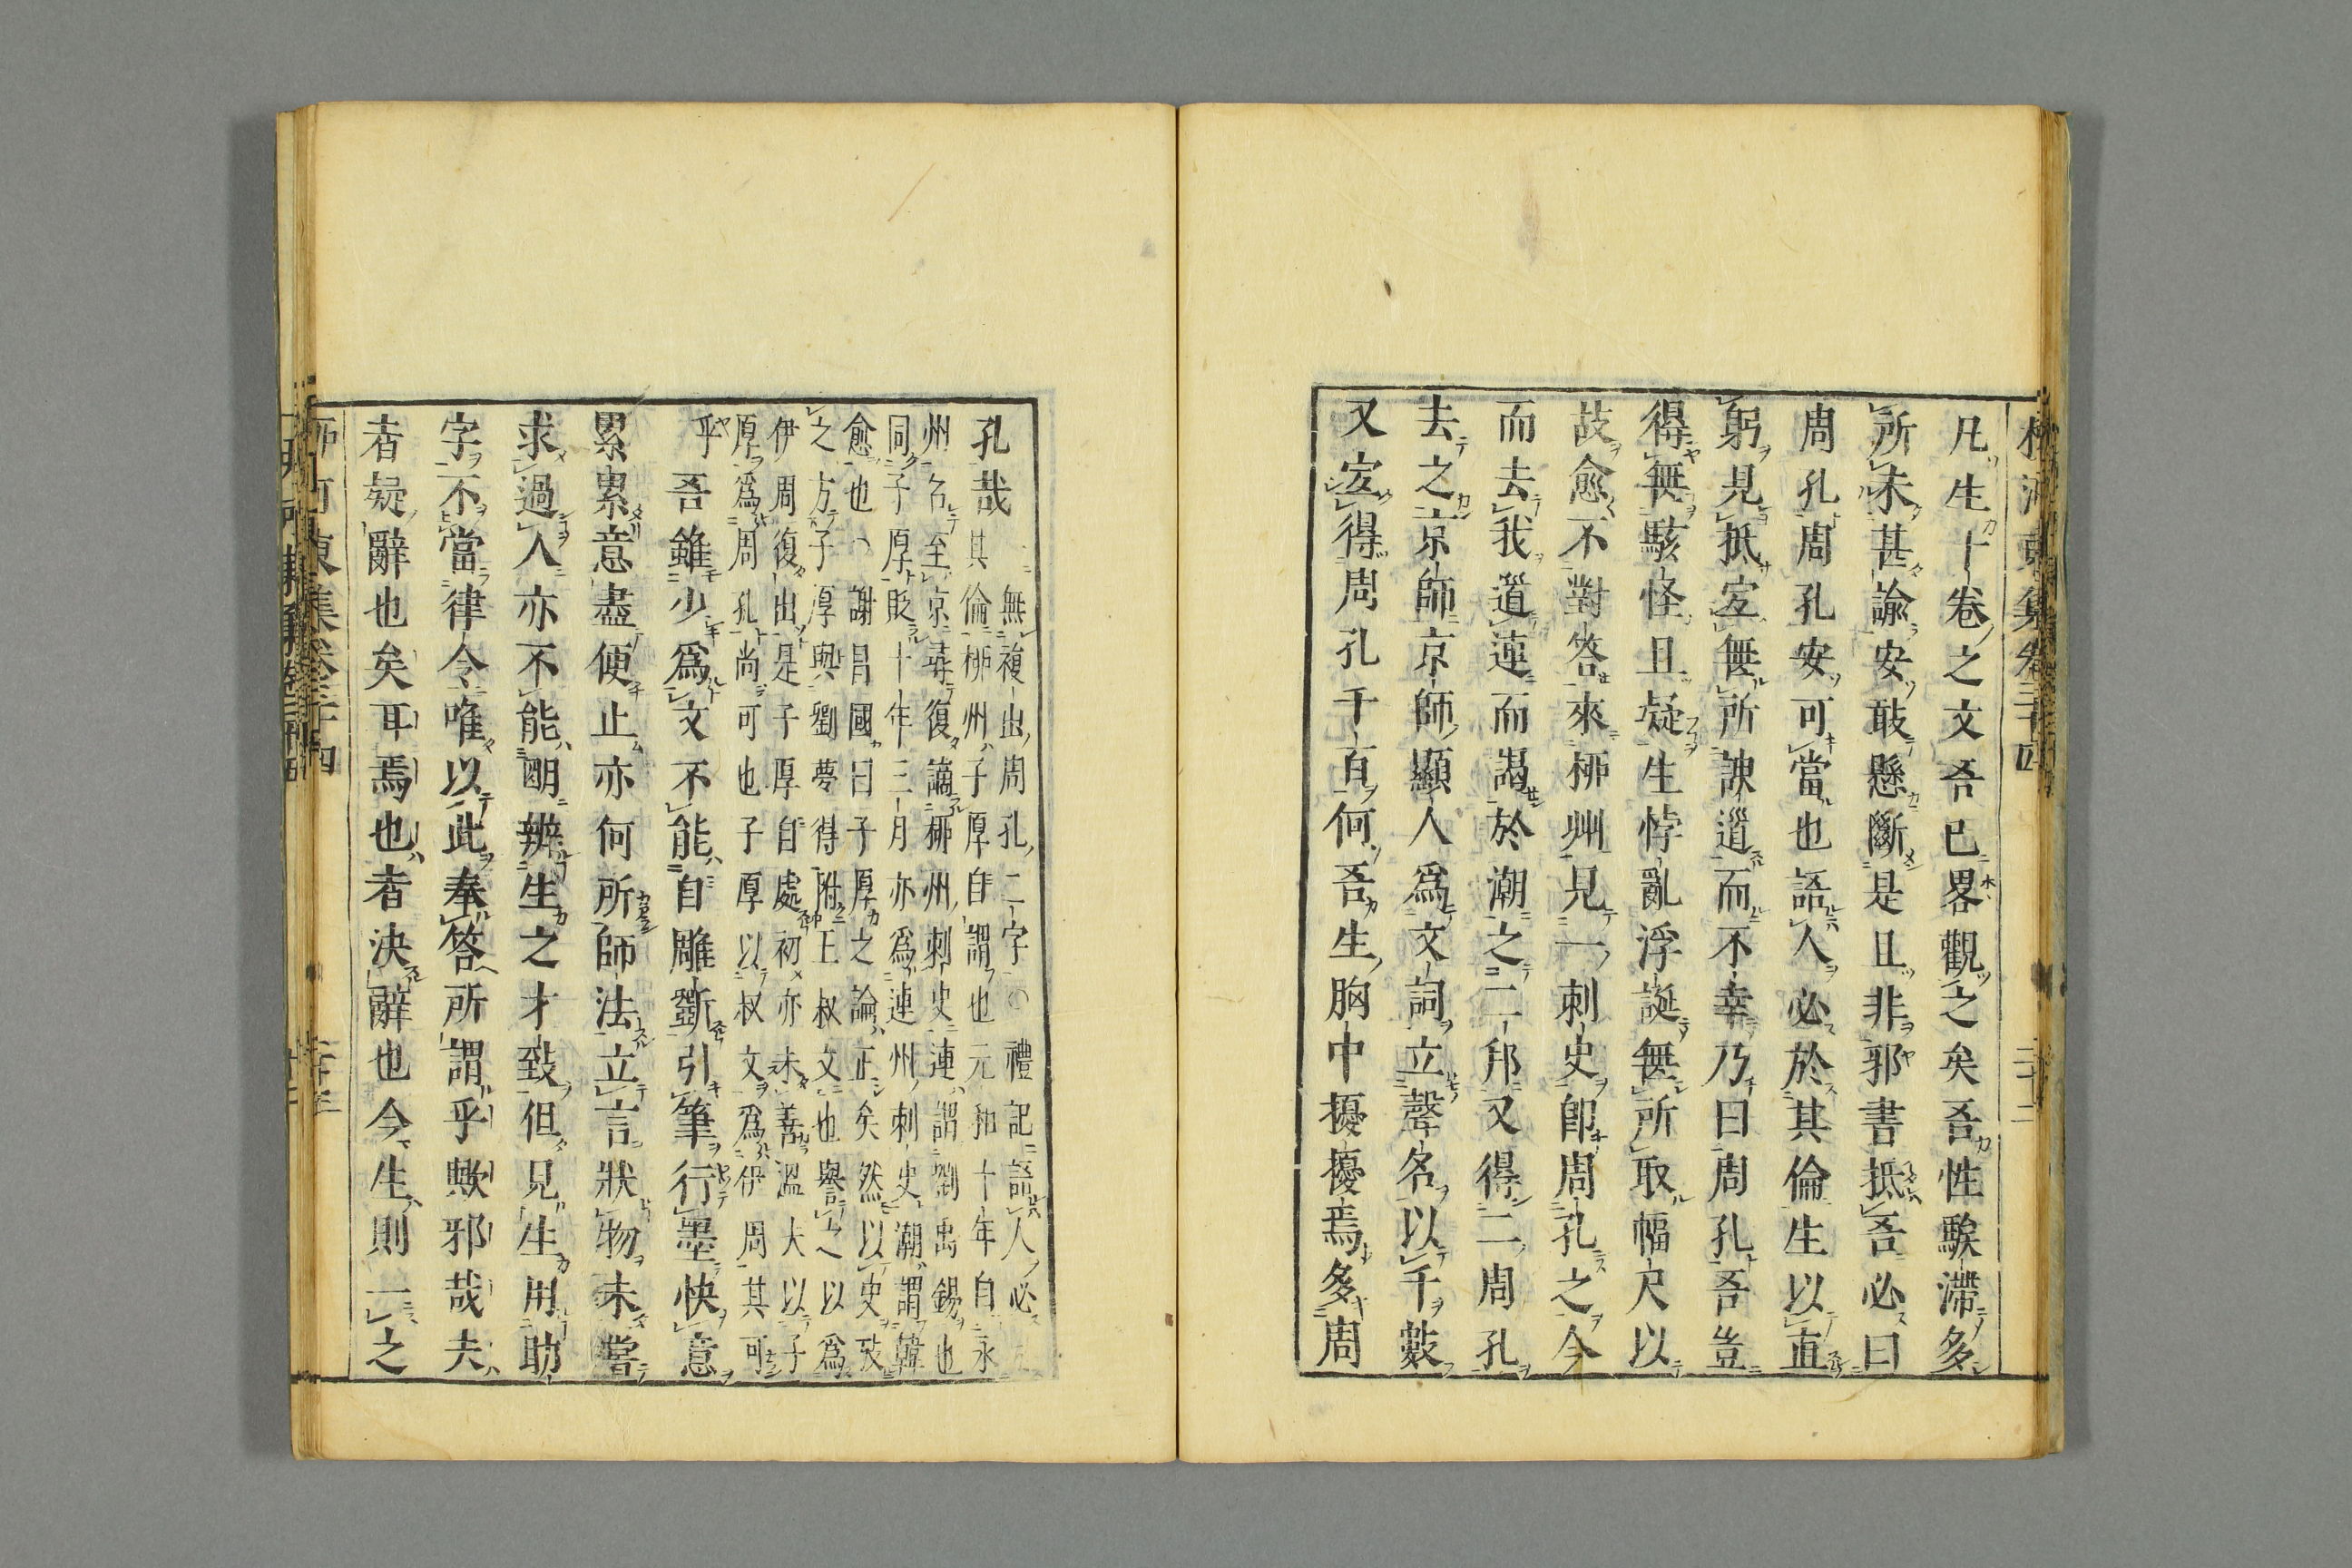 凡生十卷之文吾已畧觀之矣吾性騃滯多
所未甚諭安敢懸斷是且非邪書抵吾必曰
周孔周孔安可當也語人必於其倫生以直
躬見抵宐無所諛道而不幸乃曰周孔吾豈
得無駭怪且疑生悖亂浮誕無所取幅尺以
故愈不對答來柳州見一刺史卽周孔之今
而去我道連而謁於潮之二邦又得二周孔
去之京師京師顯人爲文詞立聲名以千數
又宐得周孔千百何吾生胸中擾擾焉多周
孔哉
無複出周孔二字○禮記語人必
其倫柳州子厚自謂也元和十年自永
州名至京尋復謫柳州刺史連謂劉禹錫也
同子厚貶十年三月亦爲連州刺史潮謂韓
愈也○謝昌國曰子厚之論正矣然以史攷
之方子厚與劉夢得附王叔文也譽之以爲
伊周復出是子厚自處初亦未善溫夫以子
厚爲周孔尚可也子厚以叔文爲伊周其可
乎
吾雖少爲文不能自雕斲引筆行墨快意
累累意盡便止亦何所師法立言狀物未嘗
求過人亦不能明辨生之才致但見生用助
字不當律令唯以此奉答所謂乎歟邪哉夫
者疑辭也矣耳焉也者決辭也今生則一之